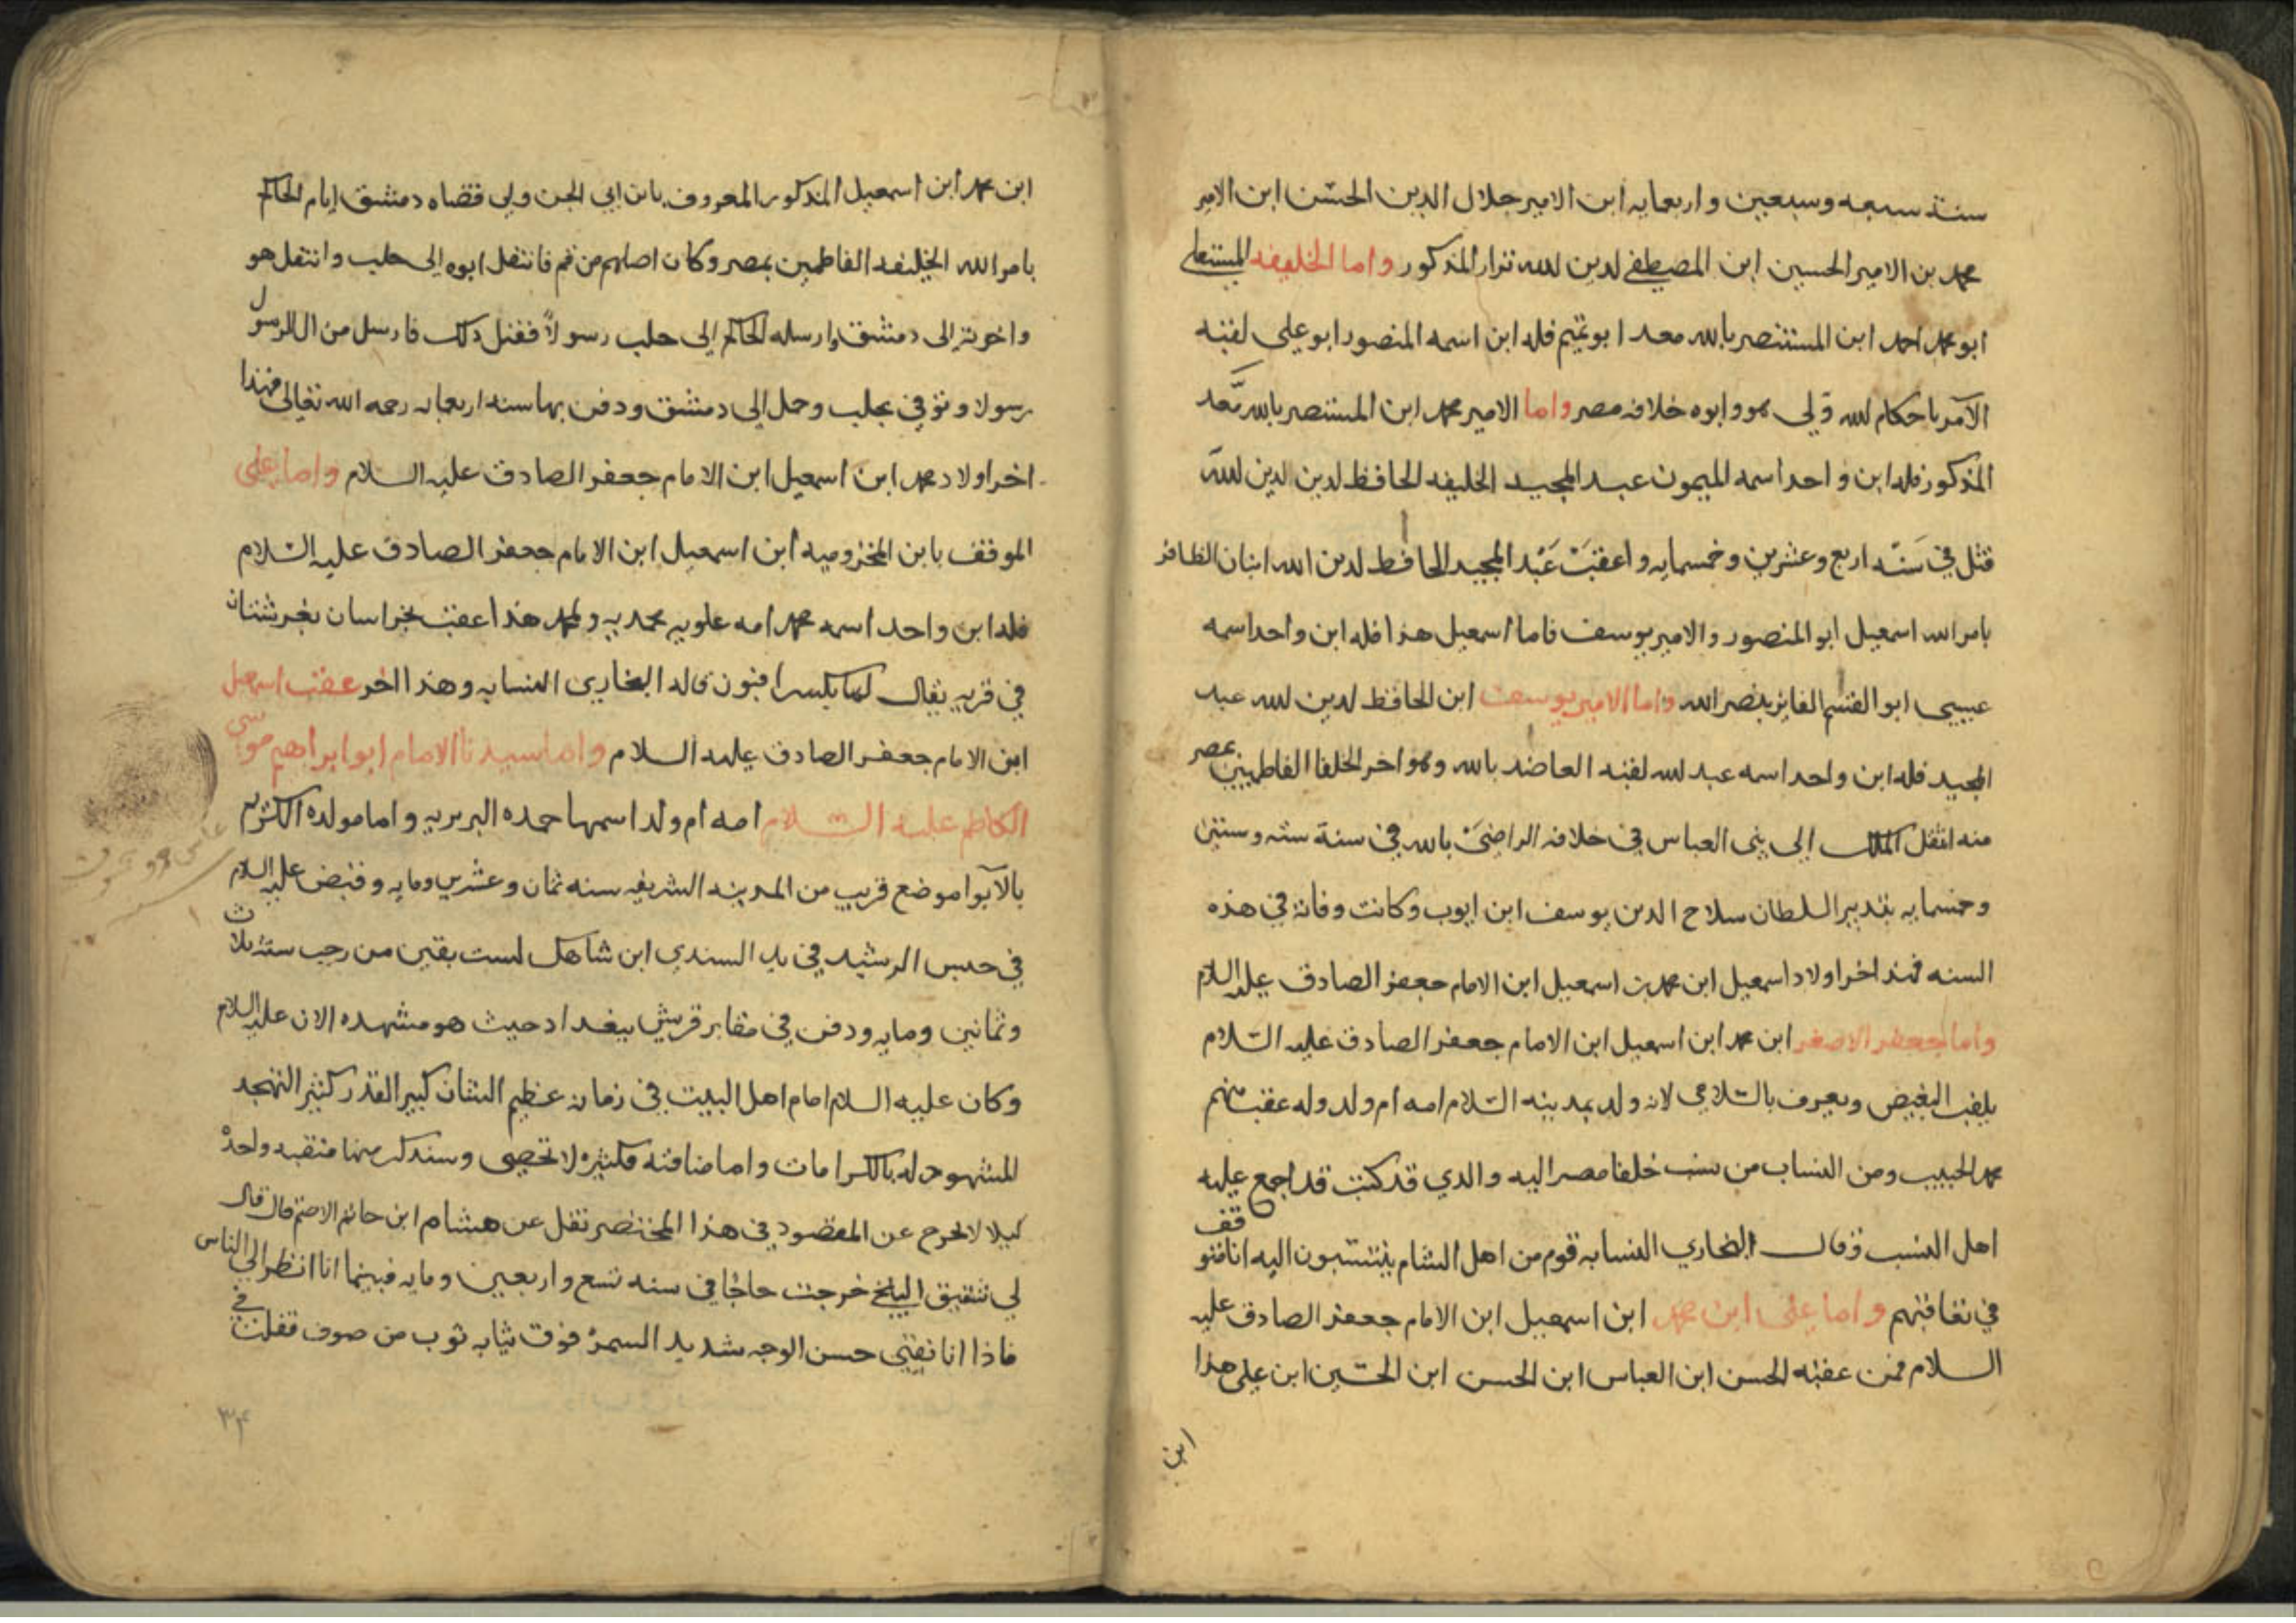 سنة سبعه وسبعين واربعمايه ابن الامير جلال الدين الحسن ابن الامير
محمد بن الامير الحسين ابن المصطفى لدين لله نزار المذكور واما الخليفه المستعلى
ابو محمد احمد ابن المستنصر بالله معد ابو تميم فله ابن اسمه المنصور ابو على لقبه
الآمر باحكام لله ولى هو وابوه خلافه مصر واما الامير محمد ابن المستنصر بالله معد
المذكور فله ابن واحد اسمه الميمون عبد المجيد الخليفه الحافظ لدين لدين لله
قتل في سنه اربع وعشرين وخمسمايه واعقب عبد المجيد الحافظ لدين الله ابنان الظافر
بامر الله اسمعيل ابو المنصور والامير يوسف فاما اسمعيل هذا فله ابن واحد اسمه
عيسى ابو القسم الفايز بنصر الله واما الامير يوسف ابن الحافظ لدين لله عبد
المجيد فله ابن واحد اسمه عبد لله لقبه العاضد بالله وهو اخر الخلفا الفاطميين بمصر
منه انتقل الملك الى بنى العباس في خلافه الراضي بالله في سنة سته وستين
وخمسمايه بتدبير السلطان سلاح الدين يوسف ابن ايوب وكانت وفاته في هذه
السنه فهذا اخر اولاد اسمعيل ابن محمد بن اسمعيل ابن الامام جعفر الصادق عليه السلام
واما جعفر الاصغر ابن محمد ابن اسمعيل ابن الامام جعفر الصادق عليه السلام
يلقب البغيض ويعرف بالسلامي لانه ولد بمدينه السلام امه ام ولد وله عقب منهم
محمد الحبيب ومن النساب من ينسب خلفا مصر اليه والذي قد كتبت قد اجمع عليه
اهل النسب وقال البخاري النسابه قوم من اهل الشام ينتسبون اليه انا متوقف
في تعاقبهم واما على ابن محمد ابن اسمعيل ابن الامام جعفر الصادق عليه
السلام فمن عقبه الحسن ابن العباس ابن الحسن ابن الحسين ابن على هذا
ابن
ابن محمد ابن اسمعيل المذكور المعروف بابن ابي الجن ولي قضاه دمشق ايام الحاكم
بامر الله الخليفه الفاطمين بمصر وكان اصلهم من قم فانتقل ابوه الى حلب وانتقل هو
واخوته الى دمشق وارسله الحاكم الى حلب رسولاً فقتل ذلك فارسل من ال الرسول
رسولا وتوفي بحلب وحمل الى دمشق ودفن بها سنه اربعمايه رحمه الله تعالى فهذا
اخر اولاد محمد ابن اسمعيل ابن الامام جعفر الصادق عليه السلام واما على
الموقف بابن المخزوميه ابن اسمعيل ابن الامام جعفر الصادق عليه السلام
فله ابن واحد اسمه محمد امه علويه محمديه ولمحمد هذا عقب بخراسان بغرشتان
في قريه يقال لها قاله البخاري النسابه وهذا اخر عقب اسمعيل
ابن الامام جعفر الصادق عليه السلام واما سيدنا الامام ابو ابراهيم موسى
الكاظم عليه السلام امه ام ولد اسمها حمده البربريه واما مولده الكثرم
بالآبوا موضع قريب من المدينه الشريفه سنه ثمان وعشرين ومايه وقبض عليه السلام
في حبس الرشيد في يد السندي ابن شاهك لست بقين من رجب سنه ثلاث
وثمانين ومايه ودفن في مقابر قريش ببغداد حيث هو مشهده الان عليه السلام
وكان عليه السلام امام اهل البيت في زمانه عظيم الشان كبير القدر كثير التهجد
المشهود له بالكرامات واما مناقبه فكثيره لا تحصى وسنذكر منها منقبه واحدة
كيلا لا نخرج عن المقصود في هذا المختصر نقل عن هشام ابن حاتم الاصم قال قال
لي شقيق البلخ خرجت حاجا في سنه تسع واربعين ومايه فبينما انا انظر الى الناس
فاذا انا بفتى حسن الوجه شديد السمرة فوق ثيابه ثوب من صوف فقلت في
٣٤